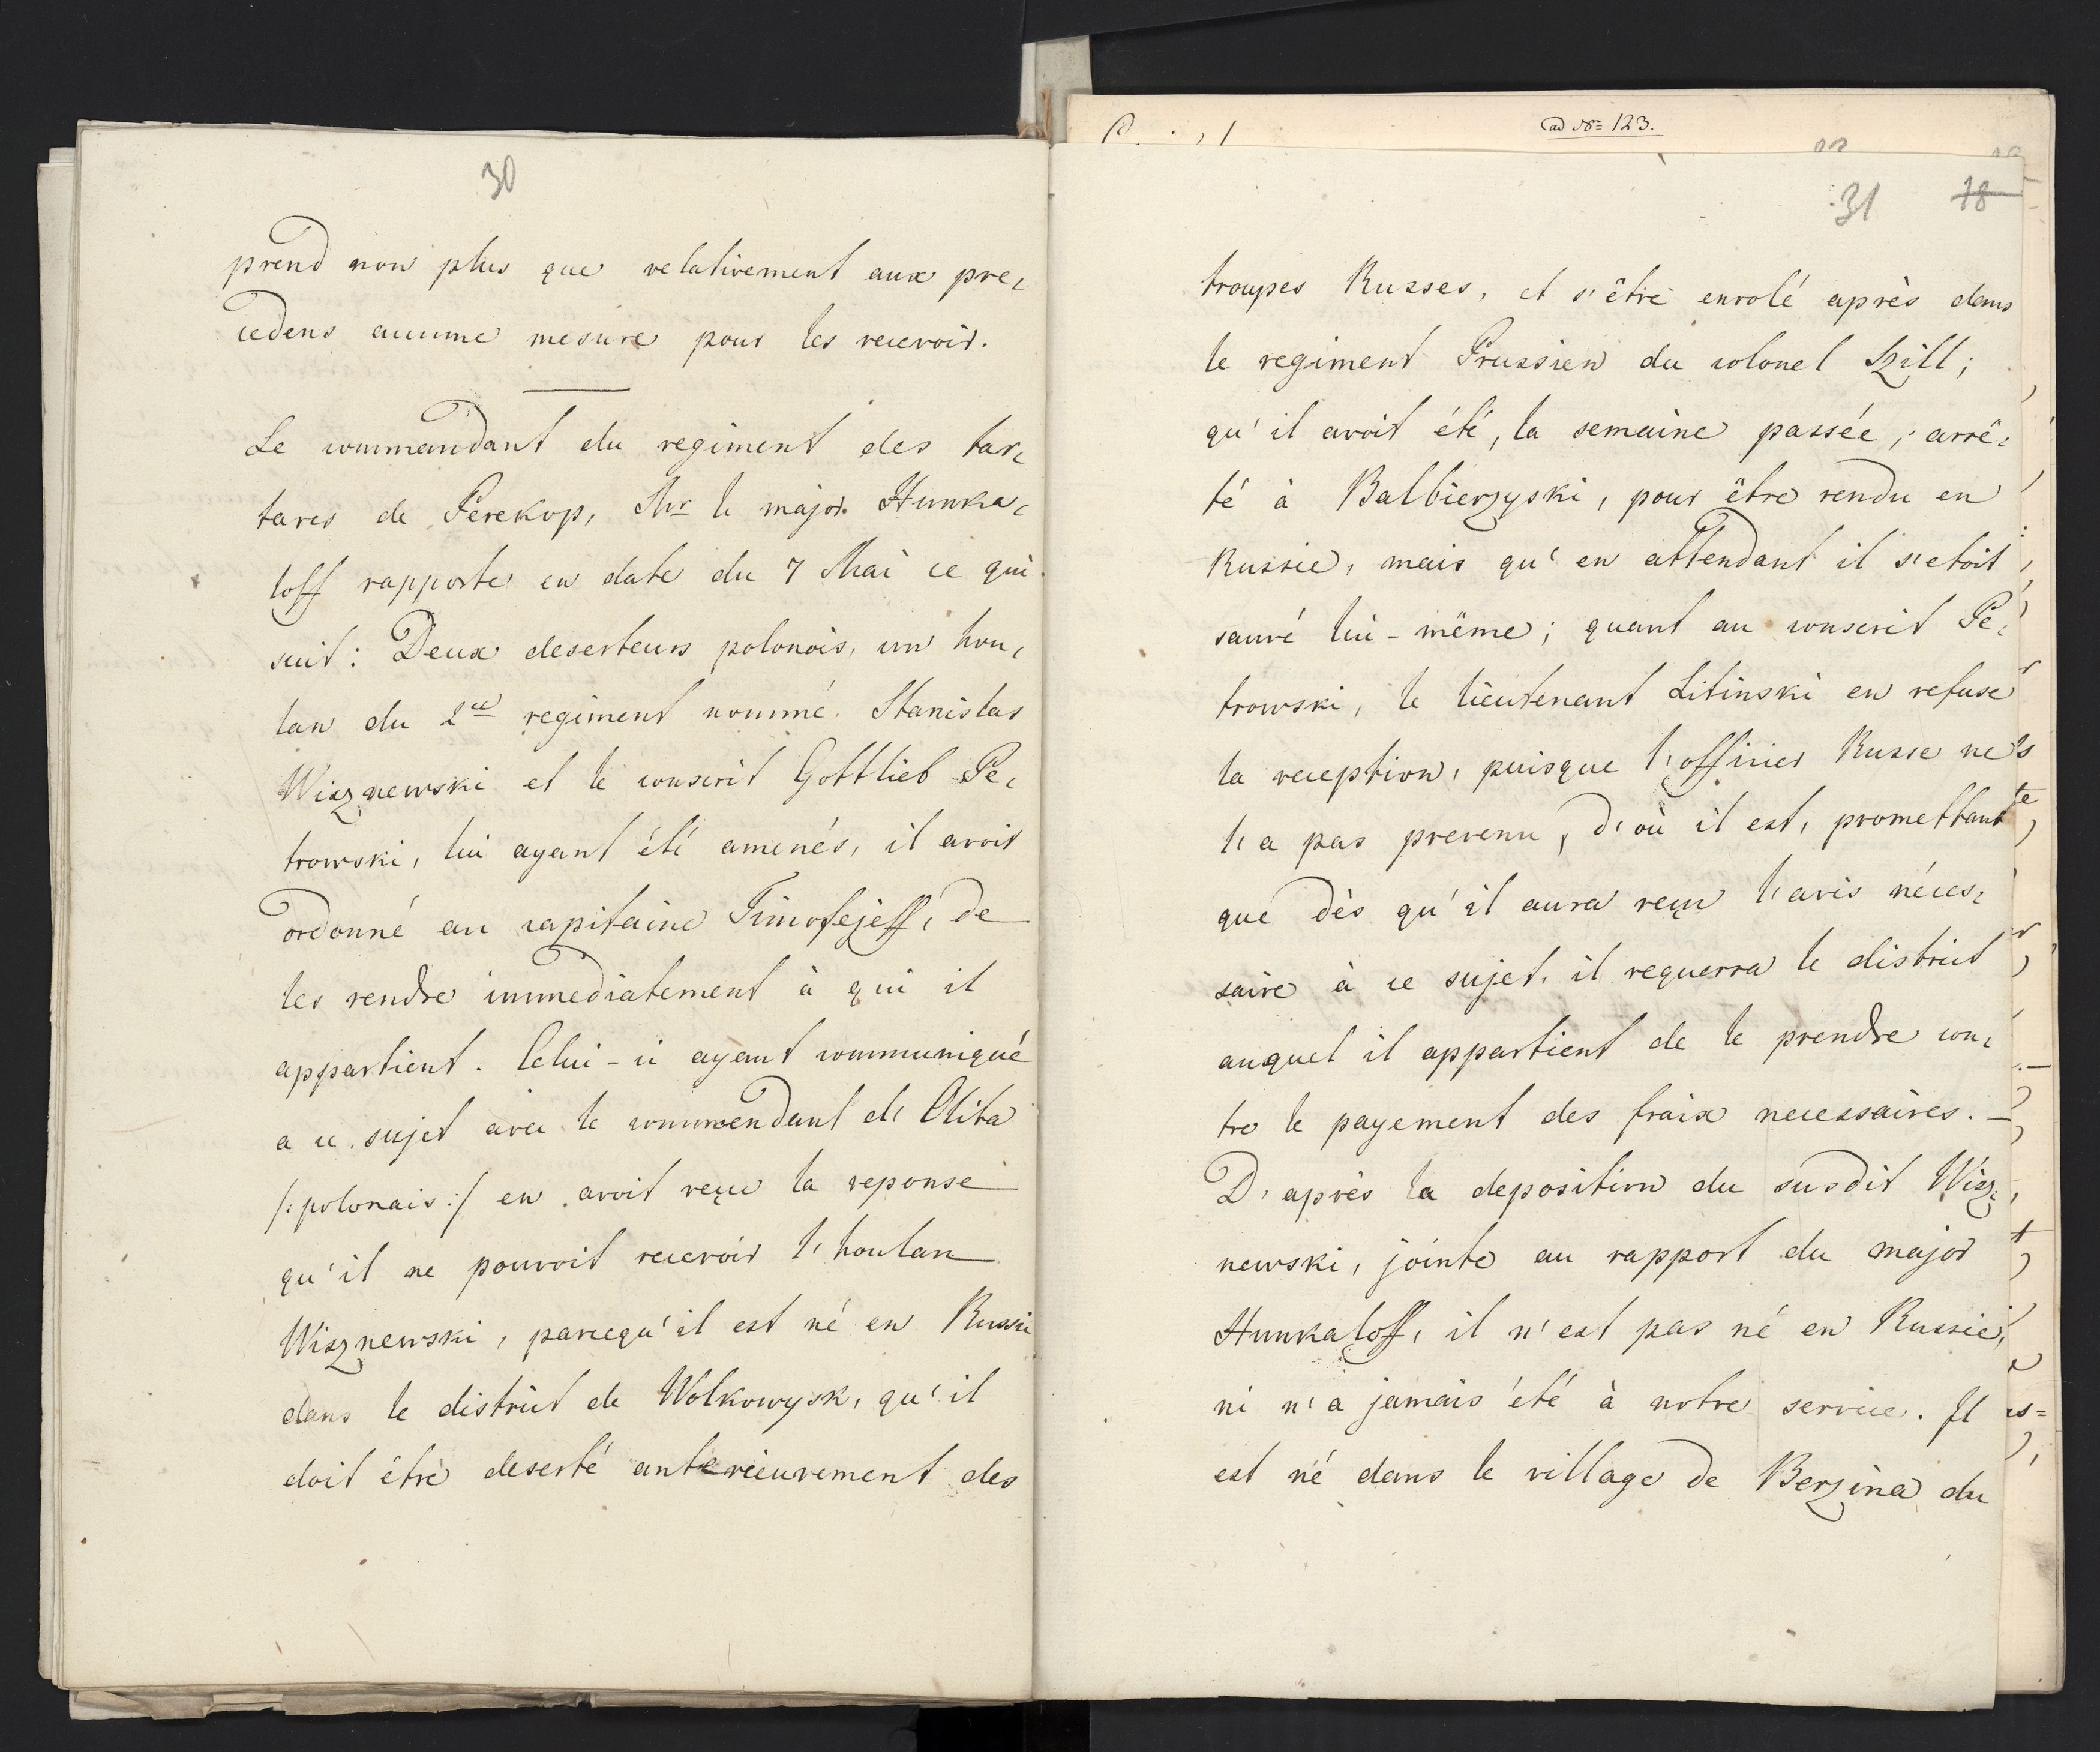 30
prend non plus que relativement aux pre-
cedens aucune mesure pour les recevoir.
Le commandant du regiment des tar-
tares de Perekop, Mr le major Hunka-
loff rapporte en date du 7 Mai ce qui
suit: Deux deserteurs polonois, un hou-
lan du 2ce regiment nommé Stanislas
Wisznewski et le conscrit Gottlieb Pe-
trowski, lui ayant été amenés, il avoit
ordonné au capitaine Timofejeff, de
les rendre immediatement à qui il
appartient. Celui-ci ayant communiqué
a ce sujet avec le commendant d'Olita
/:polonais:/ en avoit reçu la reponse
qu'il ne pouvoit recevoir l'houlan
Wisznewski, parcequ'il est né en Russie
dans le district de Wolkowysk, qu'il
doit être deserté anterieurement des
ad No 123.
31 18
troupes Russes, et s'être enrolé après dans
le regiment Prussien du colonel Szill;
qu'il avoit été, la semaine passée, arrê-
té à Balbierzyski, pour être rendu en
Russie, mais qu'en attendant il s'etoit
sauvé lui-même; quant au conscrit Pe-
trowski, le lieutenant Litinski en refuse
la reception, puisque l'officier Russe ne
l'a pas prevenu, d'où il est, promettant
que dès qu'il aura reçu l'avis néces-
saire à ce sujet, il requerra le district
auquel il appartient de le prendre con-
tre le payement des fraix necessaires. —
D'après la deposition du susdit Wisz-
newski, jointe au rapport du major
Hunkaloff, il n'est pas né en Russie,
ni n'a jamais été à notre service. Il
est né dans le village de Berzina du